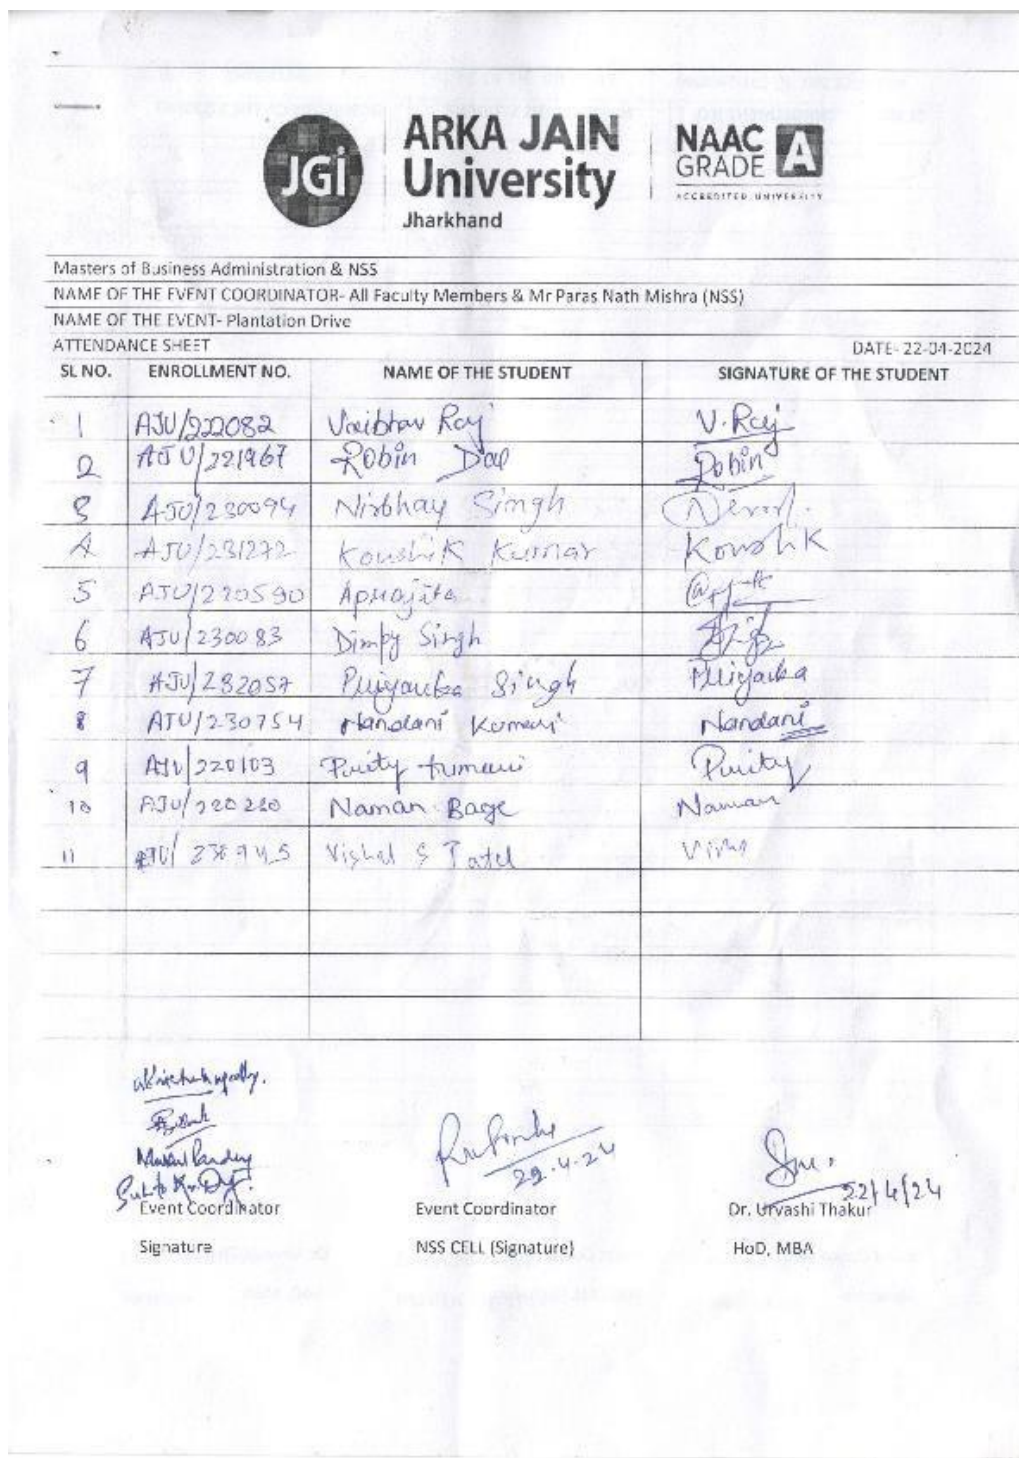 JGi
ARKA JAIN
University
Jharkhand
NAAC
GRADE A
ACCREDITED UNIVERSITY
Masters of Business Administration & NSS
NAME OF THE EVENT COORDINATOR- All Faculty Members & Mr Paras Nath Mishra (NSS)
NAME OF THE EVENT- Plantation Drive
ATTENDANCE SHEET DATE- 22-04-2024
SL NO. ENROLLMENT NO. NAME OF THE STUDENT SIGNATURE OF THE STUDENT
1 AJU/222082 Vaibhav Raj V.Raj
2 AJU/221967 Robin Robin
3 AJU/230094 Nirbhay Singh
4 AJU/231272 Koushik Kumar Koushik
5 AJU/220590 Aprajita
6 AJU/230083 Dimpy Singh
7 AJU/232057 Priyanka Singh Priyanka
8 AJU/230754 Nandani Kumari Nandani
9 AJU/220103 Purity Kumari Purity
10 AJU/220220 Naman Bage Naman
11 Vishal S Patel
29.4.24
22/4/24
Event Coordinator Event Coordinator Dr. Urvashi Thakur
Signature NSS CELL (Signature) HoD, MBA